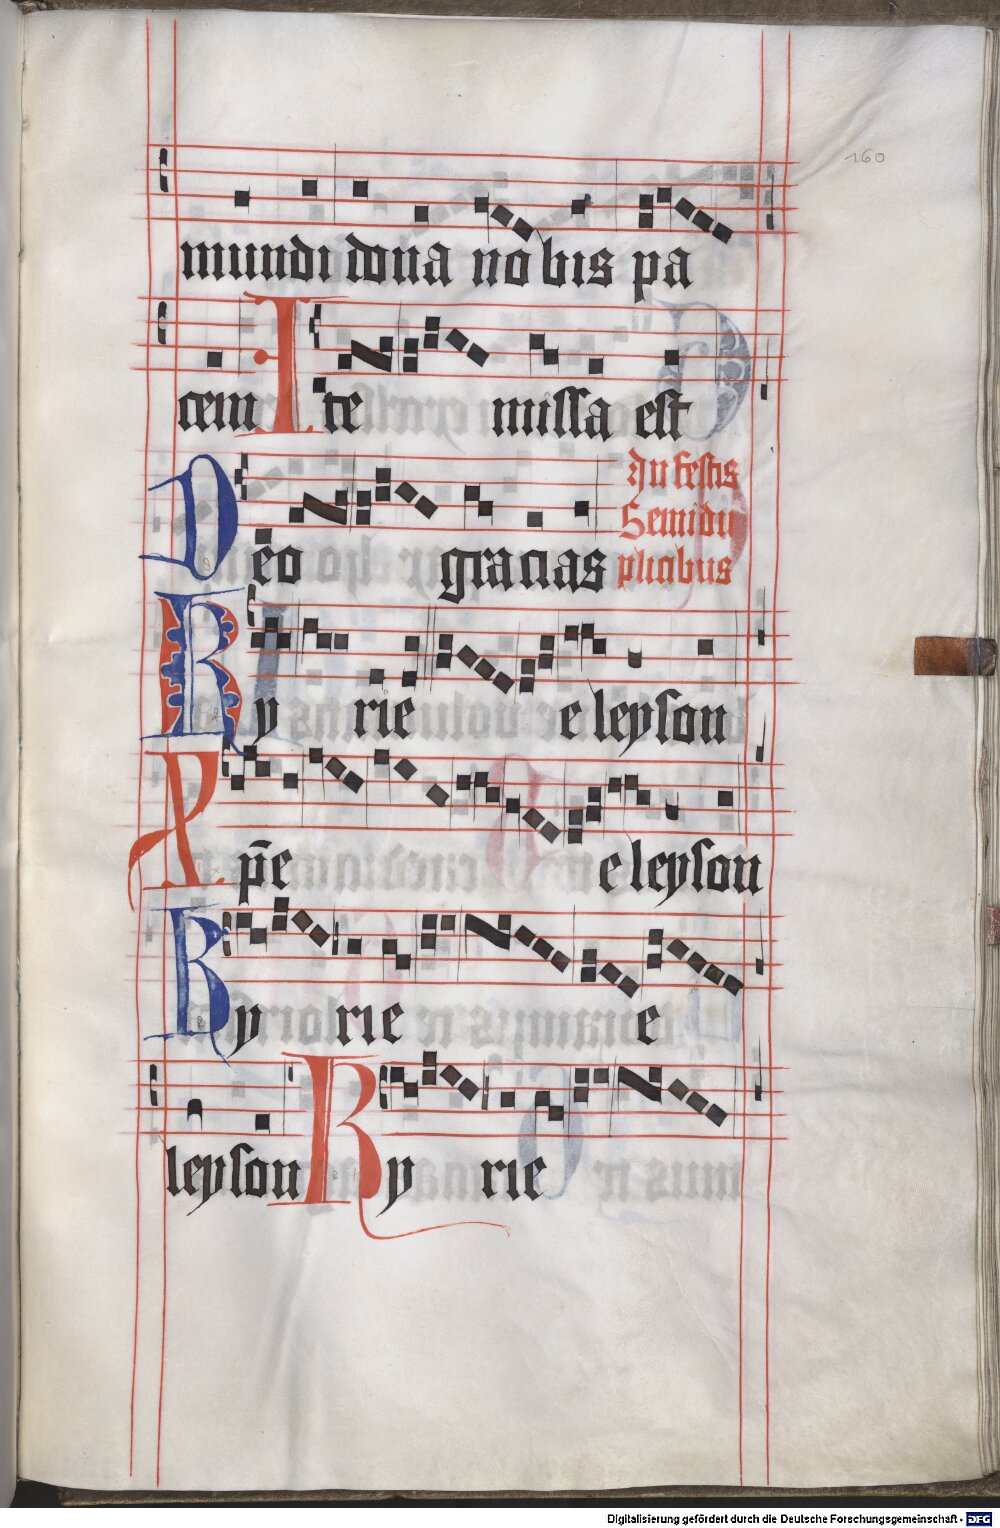 160
mundi dona nobis pa
cem Ite missa est
Deo gracias In festis
Semidu
plicibus
Kyrie eleyson
Xp̄e eleyson
Kyrie e
leyson Kyrie
Digitalisierung gefördert durch die Deutsche Forschungsgemeinschaft - DFG